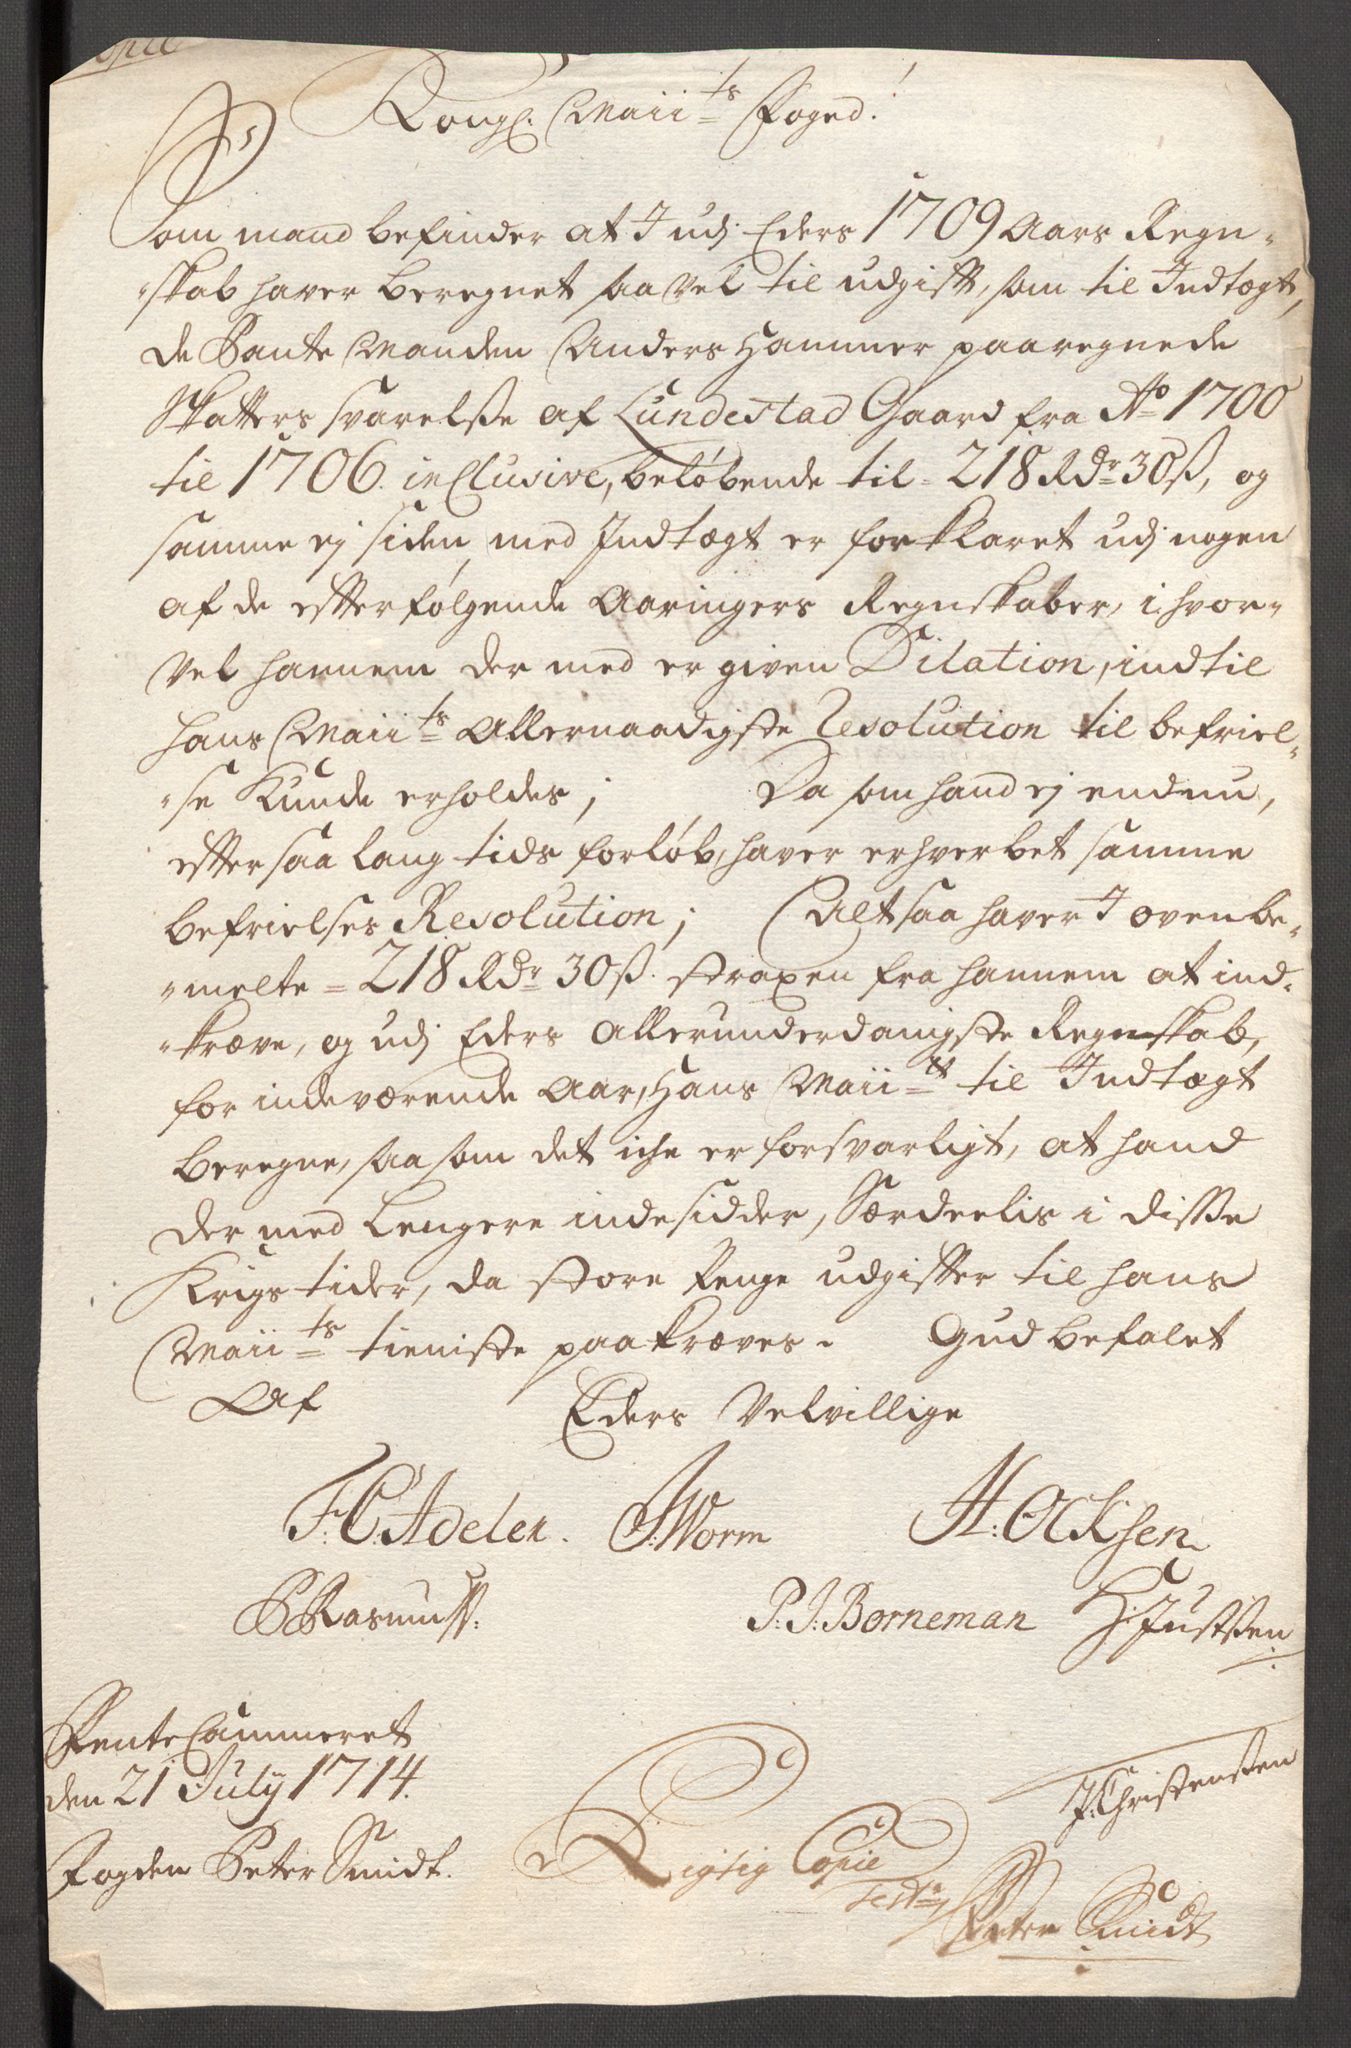 Copie
Kongl. Maii ts Foged!
Som mand befinder at I udj Eders 1709 Aars Regn-
-skab haver beregnet saa vel til udgift, som til Indtægt,
de Pante Manden Anders Hammer paaregnede
Skatters svarelse af Lundestad Gaard fra Ao 1700
til 1706 inclusive, beløbende til 218 Rdr 30 ß, og
samme ej siden med Indtægt er forklaret udj nogen
af de efterfølgende Aaringers Regnskaber, i hvor-
vel hannem der med er given Dilation, indtil
hans Maii ts Allernaadigste Resolution til befriel-
-se kunde erholdes; Da som hand ej endnu,
efter saa lang tids forløb, haver erhverbet samme
befrielses Resolution; Alt saa haver I ovenbe-
-melte 218 Rdr 30 ß. straxen fra hannem at ind-
-kræve, og udj Eders allerunderdanigste Regnskab,
for indeværende Aar, Hans Maii tt til Indtægt
beregne, saa som det iche er forsvarligt, at hand
der med lengere indesidder, Særdeelis i disse
Krigs tider, da store Penge udgifter til hans
Maii ts tieniste paakræves. Gud befalet
Af Eders Velvillige
F: C: Adeler. J: Worm A: Ocksen
P Rasmuss: P: J: Borneman H: Justsen
Rente Cammeret
den 21 July 1714.
J: Christensen
Fogden Peter Smidt.
Rigtig Copie
Test:
Peter Smidt